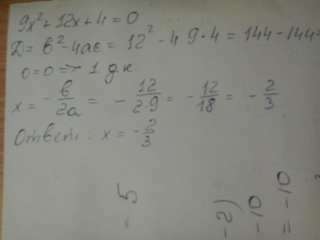 9x²+12x+4=0
D=b²-4ac=12²-4·9·4=144-144=
0=0=>1 д.к.
x=-b/2a=-12/2·9=-12/18=-2/3
Ответ: x=-2/3
-5
-2)
-10
=-10